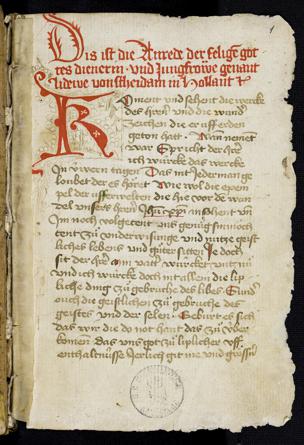 Dis ist die Anrede der selige got
tes dienerin · und Jungfrowe genant
lidewe von scheidam in Hollant
Koment und sehent die wercke
des hren und die wund
zeichen die er uff erden
geton hatt · Man nemet
war Spricht der hre
ich würcke das wercke
In üwern tagen Das mit Jederman ge
loubet der es höret Wie wol die exem
pel der usserwelten die hie vor de wan
del unsers hern Jhu xpi
Im noch volgetent uns genüg sin noch
tent zü underwisunge und nutze geist
liches lebens und güter sitten Je doch
sit der hre
und ich würcke doch mit allem die lip
liche ding zü gebruche des libes · Sunder
ouch die geistlichen zü gebruche des
geistes und der selen · Gebürt es sich
das wir die do not hant das zü über
komen das uns got zü liplicher uff
enthaltnusse Jerlich git